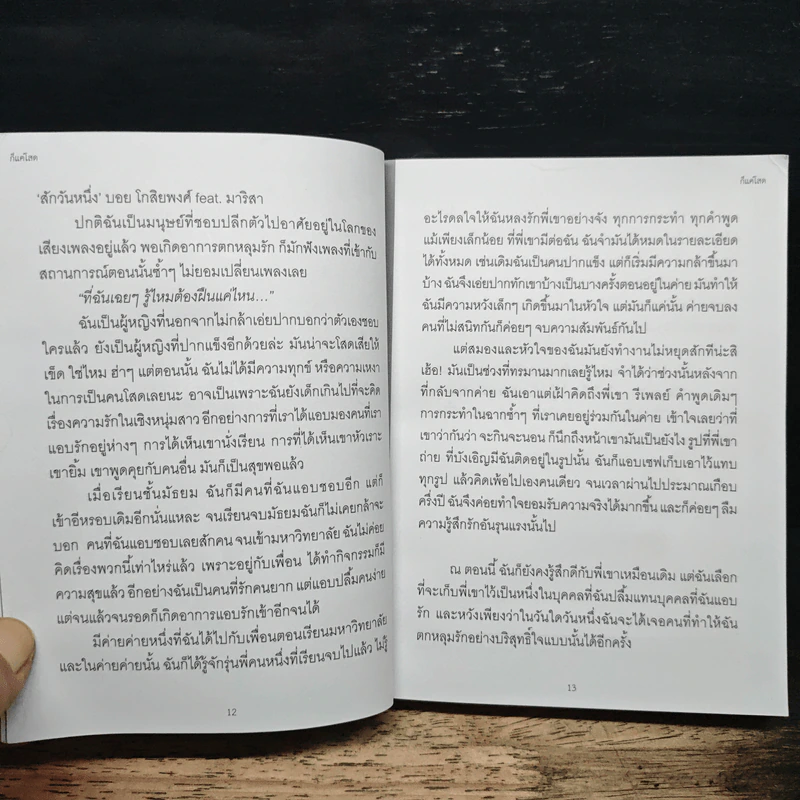 ก็แค่โสด
'สักวันหนึ่ง' บอย โกสิยพงศ์ feat. มาริสา
ปกติฉันเป็นมนุษย์ที่ชอบปลีกตัวไปอาศัยอยู่ในโลกของ
เสียงเพลงอยู่แล้ว พอเกิดอาการตกหลุมรัก ก็มักฟังเพลงที่เข้ากับ
สถานการณ์ตอนนั้นซ้ำๆ ไม่ยอมเปลี่ยนเพลงเลย
"ที่ฉันเฉยๆ รู้ไหมต้องฝืนแค่ไหน..."
ฉันเป็นผู้หญิงที่นอกจากไม่กล้าเอ่ยปากบอกว่าตัวเองชอบ
ใครแล้ว ยังเป็นผู้หญิงที่ปากแข็งอีกด้วยล่ะ มันน่าจะโสดเสียให้
เข็ด ใช่ไหม ฮ่าๆ แต่ตอนนั้น ฉันไม่ได้มีความทุกข์ หรือความเหงา
ในการเป็นคนโสดเลยนะ อาจเป็นเพราะฉันยังเด็กเกินไปที่จะคิด
เรื่องความรักในเชิงหนุ่มสาว อีกอย่างการที่เราได้แอบมองคนที่เรา
แอบรักอยู่ห่างๆ การได้เห็นเขานั่งเรียน การที่ได้เห็นเขาหัวเราะ
เขายิ้ม เขาพูดคุยกับคนอื่น มันก็เป็นสุขพอแล้ว
เมื่อเรียนชั้นมัธยม ฉันก็มีคนที่ฉันแอบชอบอีก แต่ก็
เข้าอีหรอบเดิมอีกนั่นแหละ จนเรียนจบมัธยมฉันก็ไม่เคยกล้าจะ
บอก คนที่ฉันแอบชอบเลยสักคน จนเข้ามหาวิทยาลัย ฉันไม่ค่อย
คิดเรื่องพวกนี้เท่าไหร่แล้ว เพราะอยู่กับเพื่อน ได้ทำกิจกรรมก็มี
ความสุขแล้ว อีกอย่างฉันเป็นคนที่รักคนยาก แต่แอบปลื้มคนง่าย
แต่จนแล้วจนรอดก็เกิดอาการแอบรักเข้าอีกจนได้
มีค่ายค่ายหนึ่งที่ฉันได้ไปกับเพื่อนตอนเรียนมหาวิทยาลัย
และในค่ายค่ายนั้น ฉันก็ได้รู้จักรุ่นพี่คนหนึ่งที่เรียนจบไปแล้ว ไม่รู้
12
ก็แค่โสด
อะไรดลใจให้ฉันหลงรักพี่เขาอย่างจัง ทุกการกระทำ ทุกคำพูด
แม้เพียงเล็กน้อย ที่พี่เขามีต่อฉัน ฉันจำมันได้หมดในรายละเอียด
ได้ทั้งหมด เช่นเดิมฉันเป็นคนปากแข็ง แต่ก็เริ่มมีความกล้าขึ้นมา
บ้าง ฉันจึงเอ่ยปากทักเขาบ้างเป็นบางครั้งตอนอยู่ในค่าย มันทำให้
ฉันมีความหวังเล็กๆ เกิดขึ้นมาในหัวใจ แต่มันก็แค่นั้น ค่ายจบลง
คนที่ไม่สนิทกันก็ค่อยๆ จบความสัมพันธ์กันไป
แต่สมองและหัวใจของฉันมันยังทำงานไม่หยุดสักทีน่ะสิ
เฮ้อ! มันเป็นช่วงที่ทรมานมากเลยรู้ไหม จำได้ว่าช่วงนั้นหลังจาก
ที่กลับจากค่าย ฉันเอาแต่เฝ้าคิดถึงพี่เขา รีเพลย์ คำพูดเดิมๆ
การกระทำในฉากซ้ำๆ ที่เราเคยอยู่ร่วมกันในค่าย เข้าใจเลยว่าที่
เขาว่ากันว่า จะกินจะนอน ก็นึกถึงหน้าเขามันเป็นยังไง รูปที่พี่เขา
ถ่าย ที่บังเอิญมีฉันติดอยู่ในรูปนั้น ฉันก็แอบเซฟเก็บเอาไว้แทบ
ทุกรูป แล้วคิดเพ้อไปเองคนเดียว จนเวลาผ่านไปประมาณเกือบ
ครึ่งปี ฉันจึงค่อยทำใจยอมรับความจริงได้มากขึ้น และก็ค่อยๆ ลืม
ความรู้สึกรักอันรุนแรงนั้นไป
ณ ตอนนี้ ฉันก็ยังคงรู้สึกดีกับพี่เขาเหมือนเดิม แต่ฉันเลือก
ที่จะเก็บพี่เขาไว้เป็นหนึ่งในบุคคลที่ฉันปลื้มแทนบุคคลที่ฉันแอบ
รัก และหวังเพียงว่าในวันใดวันหนึ่งฉันจะได้เจอคนที่ทำให้ฉัน
ตกหลุมรักอย่างบริสุทธิ์ใจแบบนั้นได้อีกครั้ง
13